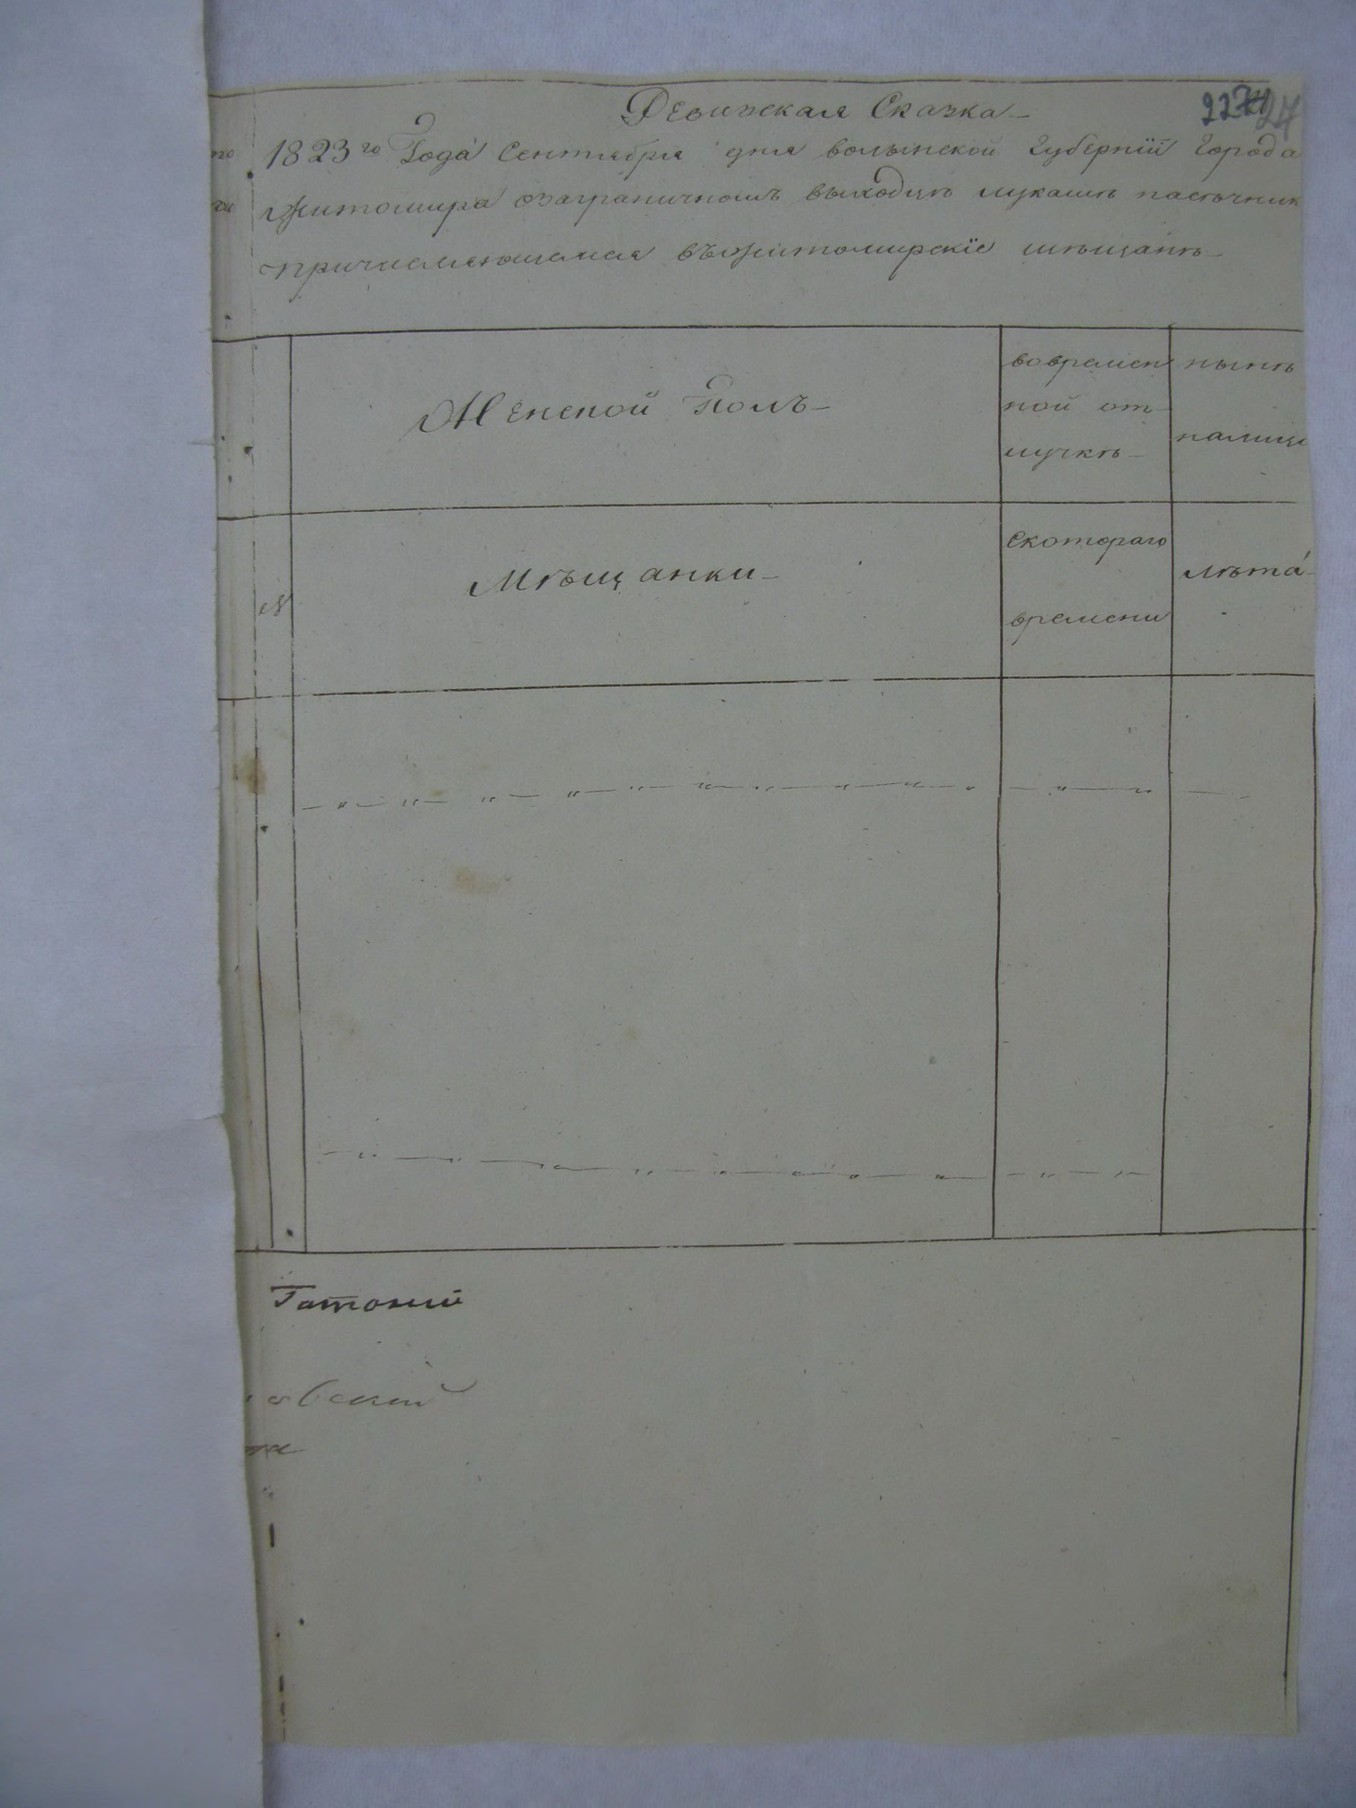 Ревижская Сказка
1823го Года Сентября дня волынской Губерніи Города
Житомира озаграничномъ выходце лукаше пасечник
причисляющемся въжитомирскіе мѣщанѣ
Женской Полъ
вовремен
ной от
лучкѣ
нынѣ
налице
N
Мѣщанки
скотораго
времени
лѣта
овский